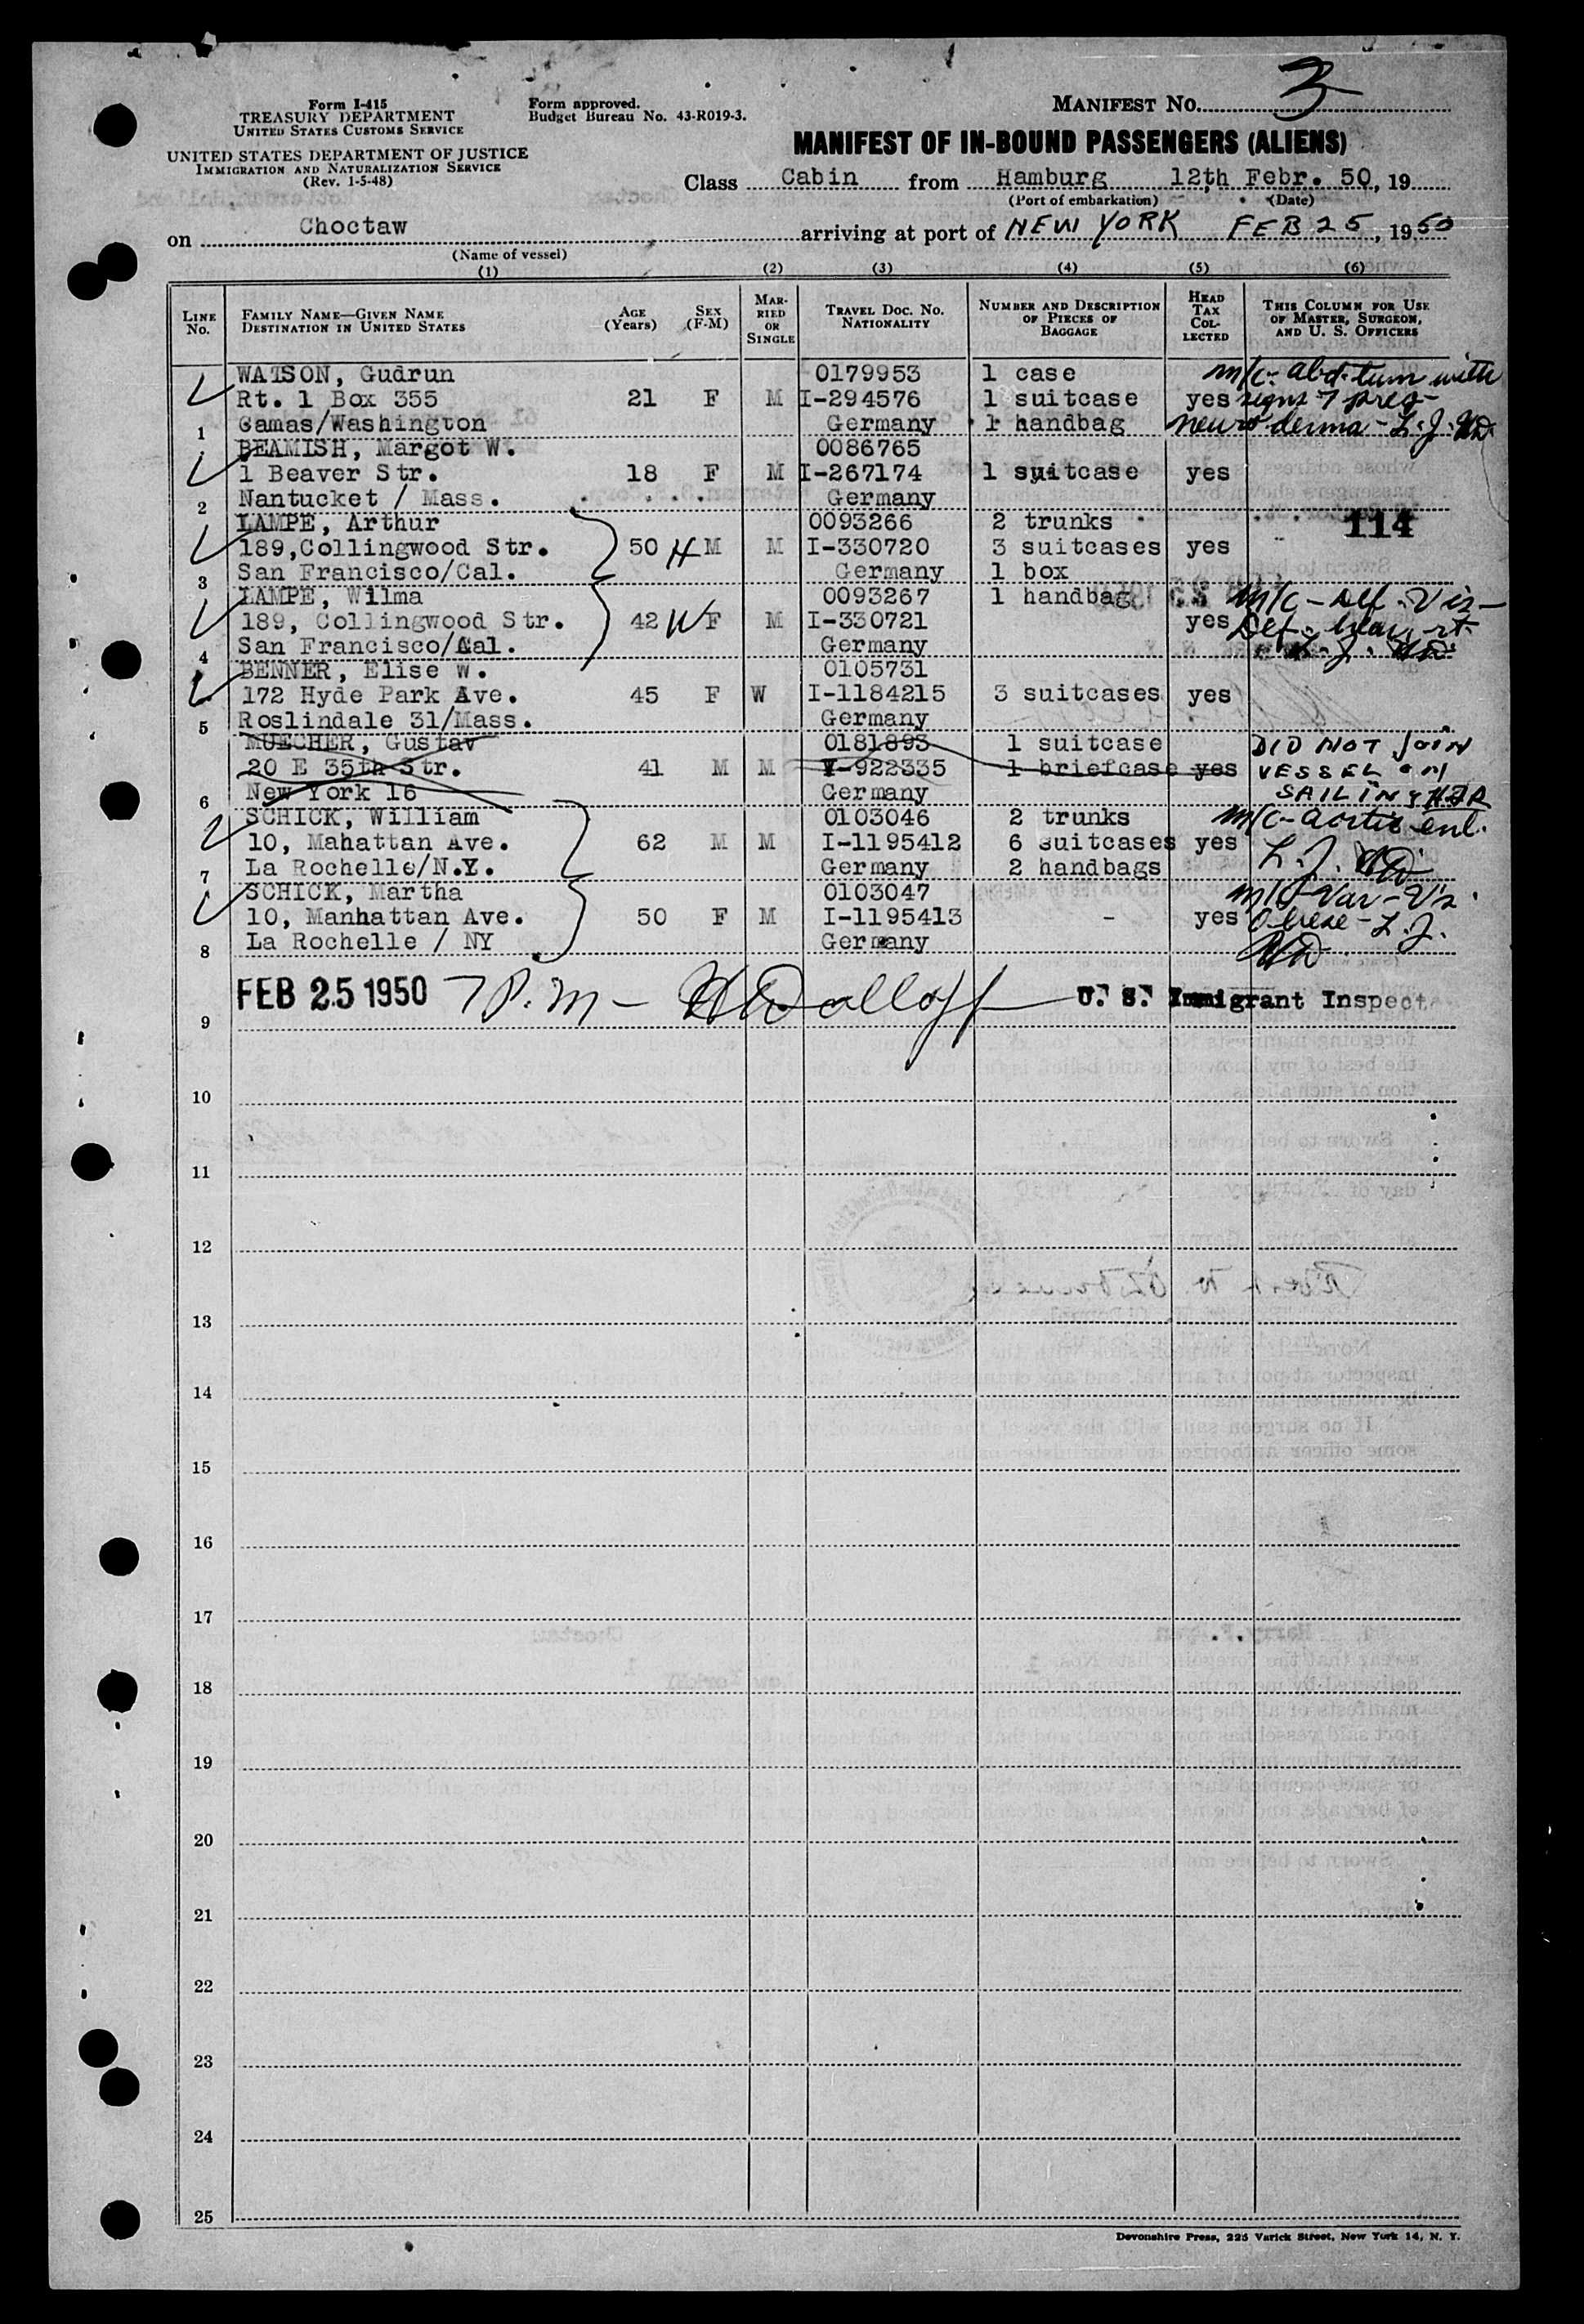 Form I-415
TREASURY DEPARTMENT
UNITED STATES CUSTOMS SERVICE
UNITED STATES DEPARTMENT OF JUSTICE
IMMIGRATION AND NATURALIZATION SERVICE
(Rev. 1-5-48)
Form approved.
Budget Bureau No. 43-R019-3.
MANIFEST NO. 3
MANIFEST OF IN-BOUND PASSENGERS (ALIENS)
Class Cabin from Hamburg 12th Febr. 50, 19
(Port of embarkation) (Date)
on Choctaw arriving at port of NEW YORK FEB 25, 1950
(Name of vessel)
(1) (2) (3) (4) (5) (6)
LINE No. FAMILY NAME—GIVEN NAME DESTINATION IN UNITED STATES AGE (Years) SEX (F-M) MARRIED OR SINGLE TRAVEL DOC. NO. NATIONALITY NUMBER AND DESCRIPTION OF PIECES OF BAGGAGE HEAD TAX COLLECTED THIS COLUMN FOR USE OF MASTER, SURGEON, AND U. S. OFFICERS
WATSON, Gudrun 0179953 1 case m/c- abd. tum with
Rt. 1 Box 355 21 F M I-294576 1 suitcase yes signs of preg-
1 Camas/Washington Germany 1 handbag neuro derma - L.J. MD.
BEAMISH, Margot W. 0086765
1 Beaver Str. 18 F M I-267174 1 suitcase yes
2 Nantucket / Mass. Germany
LAMPE, Arthur 0093266 2 trunks 114
189,Collingwood Str. 50 H M M I-330720 3 suitcases yes
3 San Francisco/Cal. Germany 1 box
LAMPE, Wilma 0093267 1 handbag m/c - Def. Vis -
189, Collingwood Str. 42 W F M I-330721 yes Def. hear. rt.
4 San Francisco/Cal. Germany L.J. MD.
BENNER, Elise W. 0105731
172 Hyde Park Ave. 45 F W I-1184215 3 suitcases yes
5 Roslindale 31/Mass. Germany
MUECHER, Gustav 0181893 1 suitcase DID NOT JOIN
20 E 35th Str. 41 M M V-922335 1 briefcase yes VESSEL ON
6 New York 16 Germany SAILING
SCHICK, William 0103046 2 trunks m/c - aortic enl.
10, Mahattan Ave. 62 M M I-1195412 6 suitcases yes L.J. MD
7 La Rochelle/N.Y. Germany 2 handbags
SCHICK, Martha 0103047 m/c - Var - Vs.
10, Manhattan Ave. 50 F M I-1195413 - yes Obese - L.J.
8 La Rochelle / NY Germany MD
FEB 25 1950 7 P.M - U. S. Immigrant Inspect
9
10
11
12
13
14
15
16
17
18
19
20
21
22
23
24
25
Devonshire Press, 225 Varick Street, New York 14, N. Y.